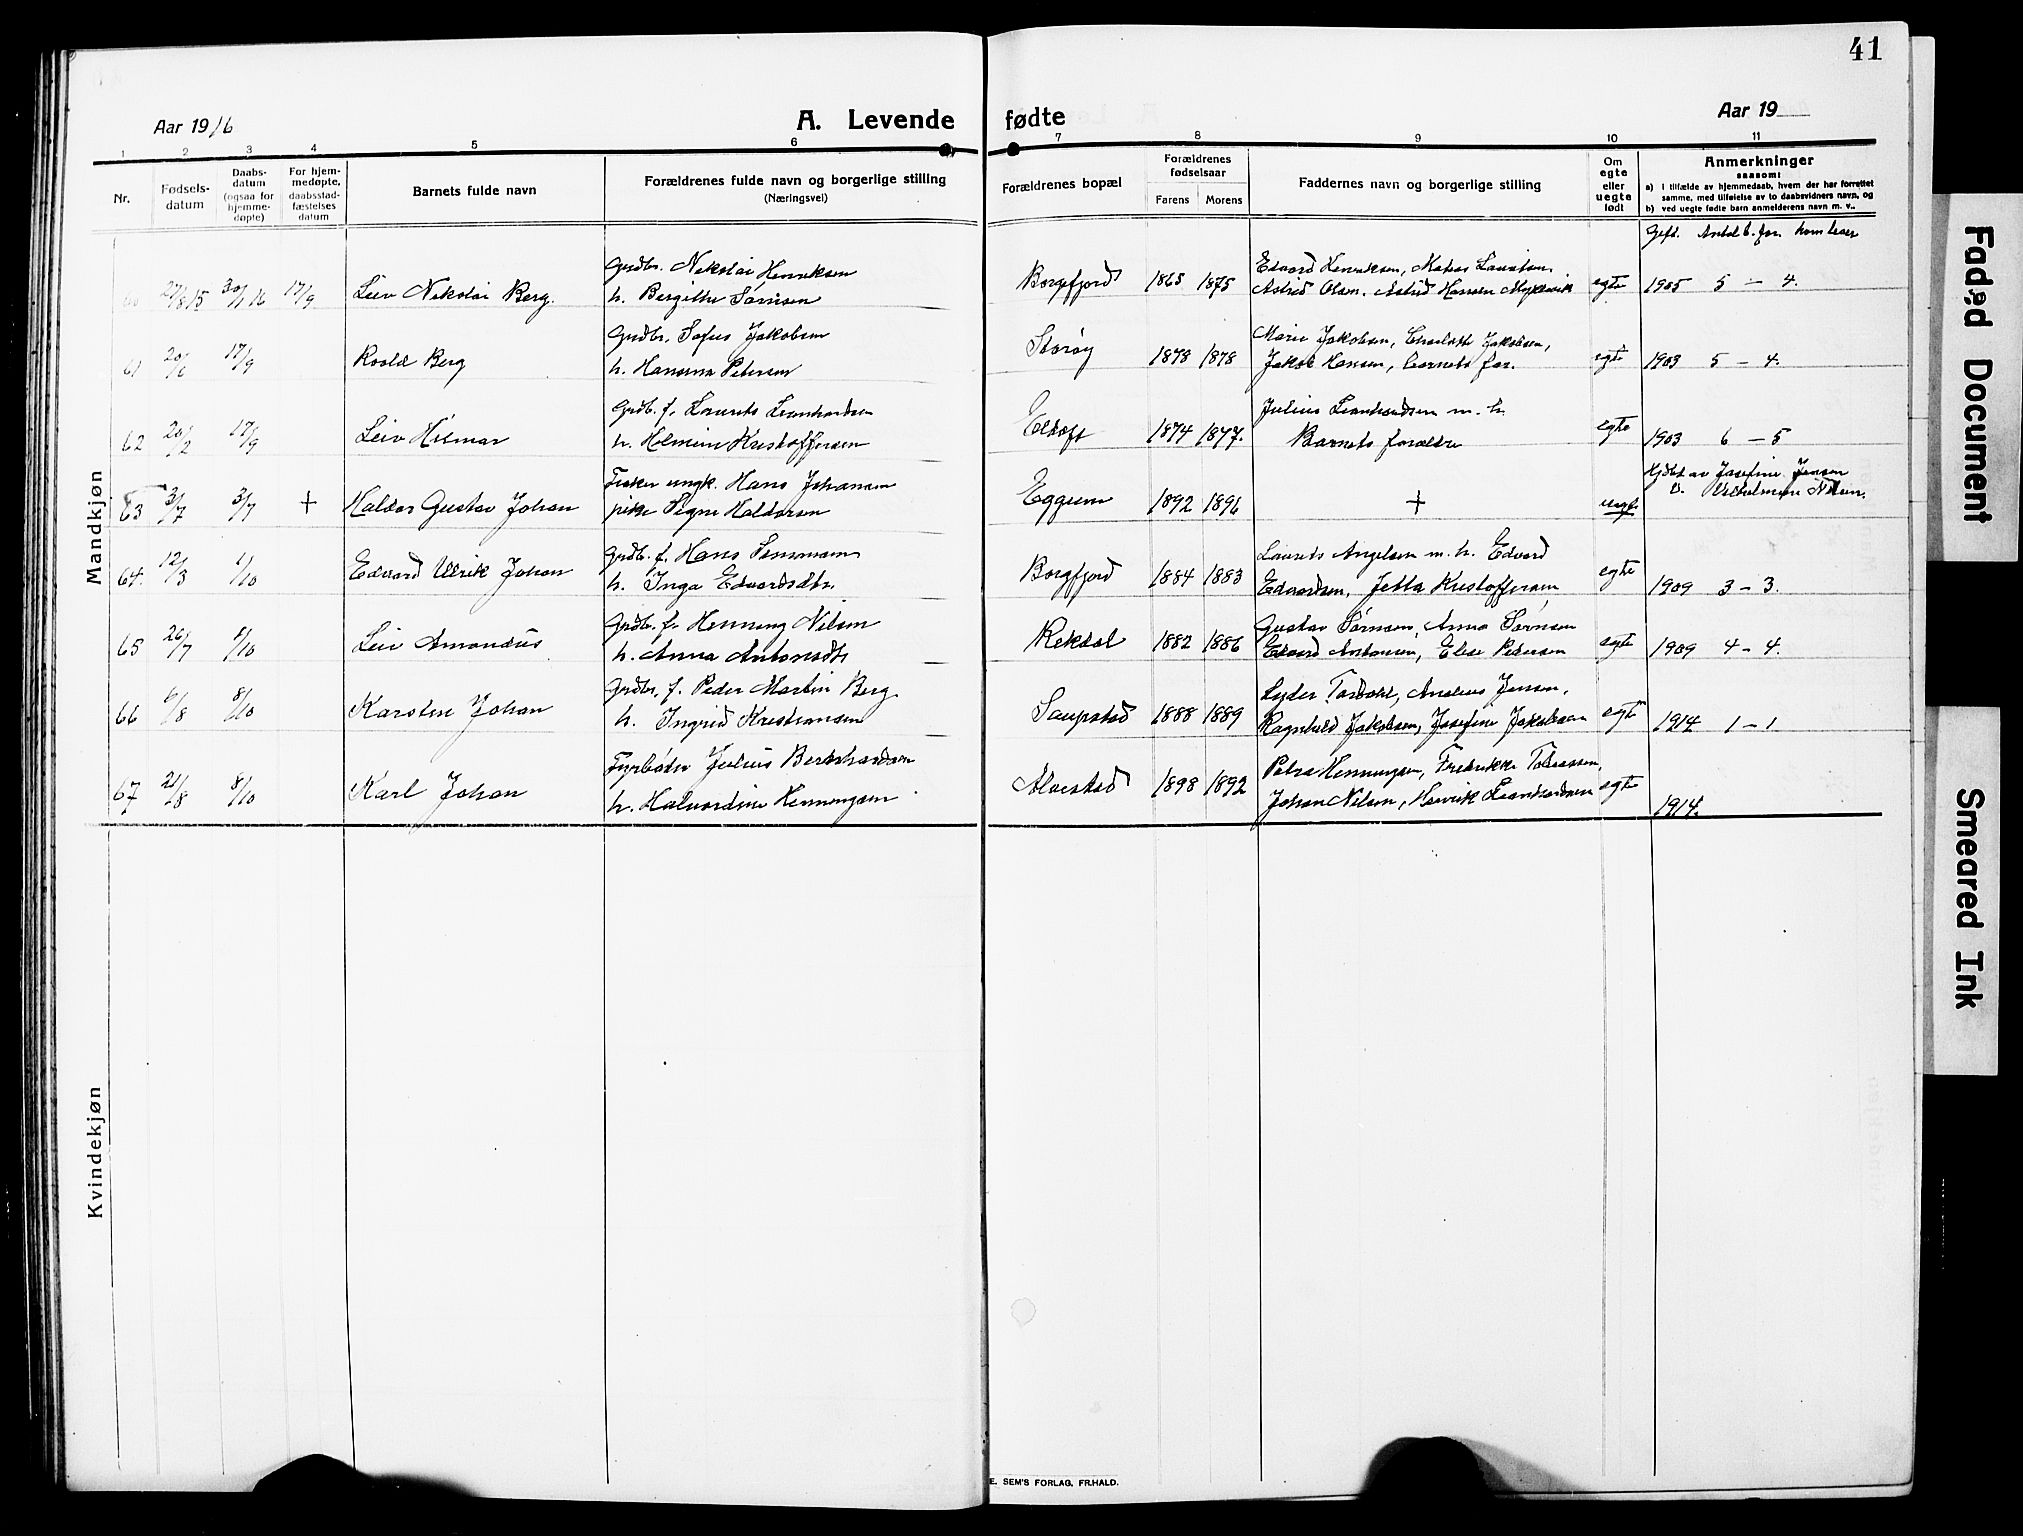 41
Aar 1916
A. Levende
fødte
Aar 19
1 2 3 4 5 6 7 8 9 10 11
Nr.
Fødsels-
datum
Daabs-
datum
(ogsaa for
hjemme-
døpte)
For hjem-
medøpte,
daabsstad-
fæstelses
datum
Barnets fulde navn
Forældrenes fulde navn og borgerlige stilling
(Næringsvei)
Forældrenes bopæl
Forældrenes
fødselsaar
Farens Morens
Faddernes navn og borgerlige stilling
Om
egte
eller
uegte
født
Anmerkninger
saasom:
a) i tilfælde av hjemmedaab, hvem der har forrettet
samme, med tilføielse av to daabsvidners navn, og
b) ved uegte fødte barn anmelderens navn m. v..
Gift. Antal b. før. hvm lever
Mandkjøn
60 27/8 15 30/1 16 17/9 Leiv Nikolai Berg.
Grdbr. Nikolai Henriksen
h. Bergithe Sørnsen
Borgfjord 1865 1875
Edvard Henriksen,
Astrid Olsen. Astrid Hansen Myklevik
egte 1905 5 — 4.
61 20/6 17/9 Roald Berg
Grdbr. Sofus Jakobsen
h. Hansina Petersen
Storøy 1878 1878
Marie Jakobsen, Charlotte Jakobsen,
Jakob Hansen, barnets far.
egte 1903 5 — 4.
62 20/2 17/9 Leiv Hilmar
Grdb. f. Laurits Leonhardsen
h. Helmine Kristoffersen
Eltoft 1874 1877.
Julius Leonhardsen m. h.
Barnets forældre
egte 1903 6 — 5
63 3/7 3/7 + Haldor Gustav Johan
Fisker ungk. Hans Johansen
pike Signe Haldorsen
Eggum 1892 1896
+
uegte
Hjdbt av Josefine Jensen
V. Vilhelmine Nilsen.
64. 12/3 1/10 Edvard Ulrik Johan
Grdb. f. Hans
h. Inga Edvardsdtr.
Borgfjord 1884 1883
Laurits Angelsen m. h. Edvard
Edvardsen, Jetta Kristoffersen
egte 1909 3 — 3.
65 26/7 8/10 Leiv Amandus
Grdb. f. Henning Nilsen
h. Anna Antonsdtr
Rekdal 1882 1886
Gustav Sørnsen, Anna Sørnsen
Edvard Antonsen, Elise Pedersen
egte 1909 4 — 4.
66 6/8 8/10 Karsten Johan
Grdbr. f. Peder Martin Berg
h. Ingrid Kristiansen
Saupstad 1888 1889
Lyder Tordahl, Analius Jensen,
Ragnhild Jakobsen, Josefine Jakobsen
egte 1914 1 — 1
67 21/8 8/10 Karl Johan
Fyrbøter Julius Bernhardsen
h. Halvordine Henningsen
Alvestad 1898 1892
Petra Henningsen, Fredrikke Tobiassen,
Johan Nilsen, Henrik Leonhardsen
egte 1914.
Kvindekjøn
E. SEM'S FORLAG, FR.HALD.
Faded Document
Smeared Ink